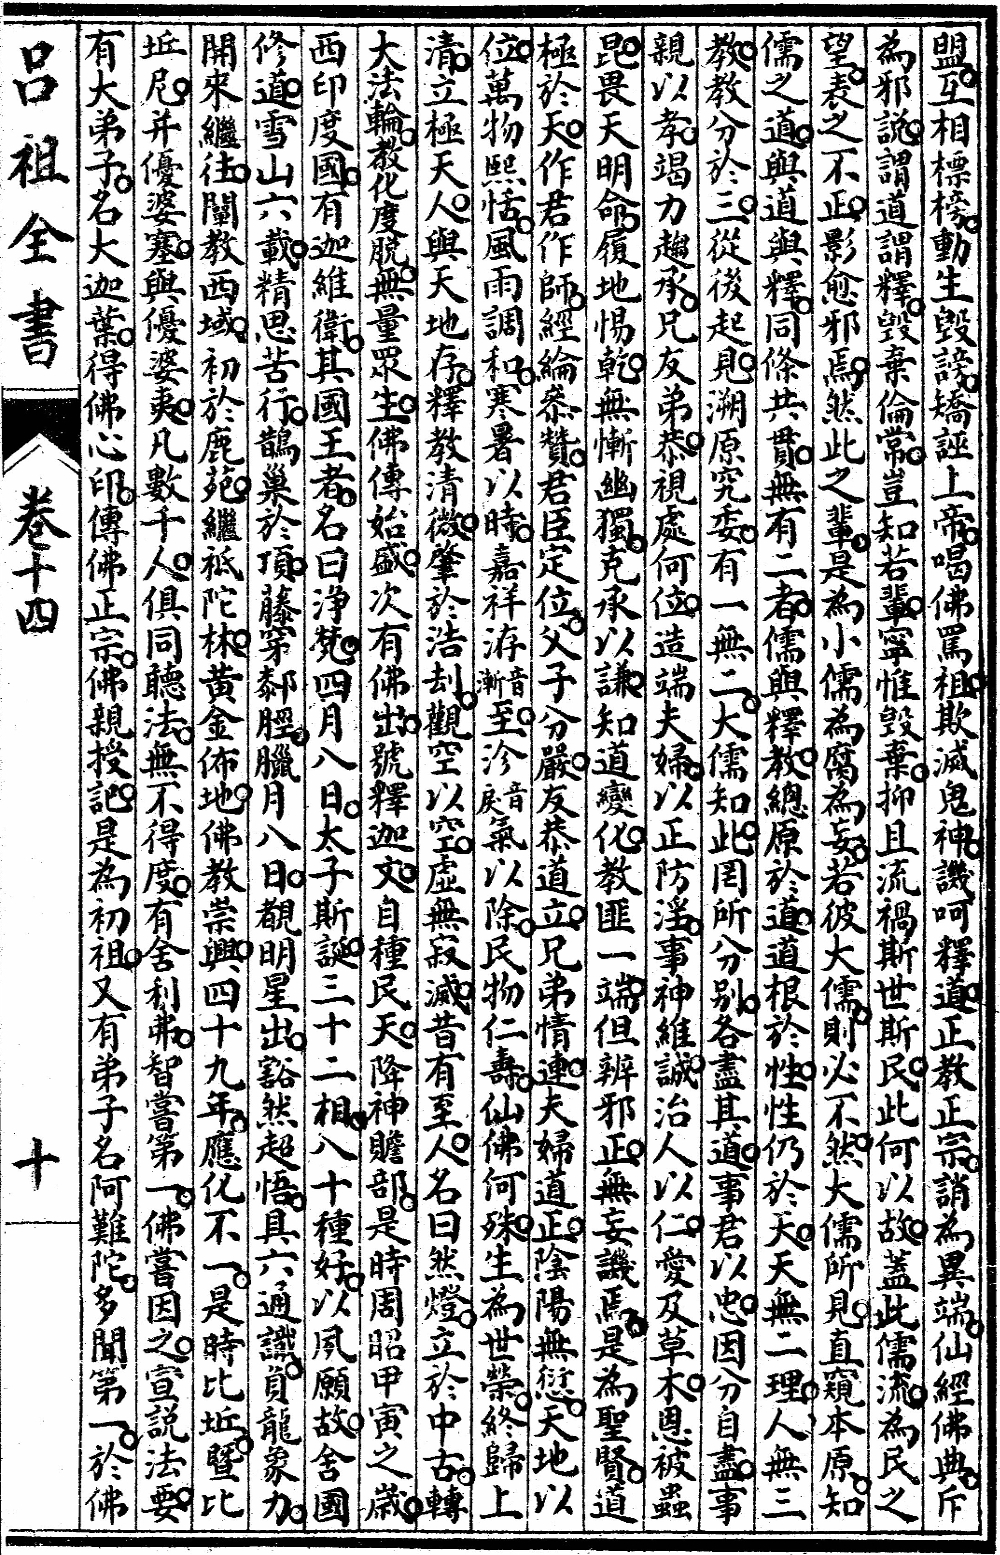 盟互相標榜動生毀謗矯誣上帝喝佛罵祖欺滅鬼神譏呵釋道正教正宗誚為異端仙經佛典斥
為邪説謂道謂釋毀棄倫常豈知若輩寧惟毀棄抑且流禍斯世斯民此何以故葢此儒流為民之
望表之不正影愈邪焉然此之輩是為小儒為腐為妄若彼大儒則必不然大儒所見直窺本原知
儒之道與道與釋同條共貫無有二者儒與釋教總原於道道根於性性仍於天天無二理人無三
教教分於三從後起見溯原究委有一無二大儒知此罔所分别各盡其道事君以忠因分自盡事
親以孝竭力趨承兄友弟恭視處何位造端夫婦以正防淫事神維誠治人以仁愛及草木恩被蟲
昆畏天明命履地惕乾無慚幽獨克承以謙知道變化教匪一端但辨邪正無妄譏焉是為聖賢道
極於天作君作師經綸叅贊君臣定位父子分嚴友恭道立兄弟情連夫婦道正陰陽無愆天地以
位萬物熙恬風雨調和寒暑以時嘉祥洊音漸至沴音戾氣以除民物仁壽仙佛何殊生為世榮終歸上
清立極天人與天地存釋教清微肇於浩刦觀空以空虛無寂滅昔有至人名曰然燈立於中古轉
大法輪教化度脱無量眾生佛傳始盛次有佛出號釋迦文自種民天降神贍部是時周昭甲寅之歲
西印度國有迦維衛其國王者名曰浄梵四月八日太子斯誕三十二相八十種好以夙願故舍國
修道雪山六載精思苦行鵲巢於項藤穿䣛脛臘月八日覩明星出豁然超悟具六通識負龍象力
開來繼往闡教西域初於鹿苑繼祗陀林黄金佈地佛教崇興四十九年應化不一是時比坵暨比
坵尼并優婆塞與優婆夷凡數千人俱同聽法無不得度有舍利弗智嘗第一佛嘗因之宣説法要
有大弟子名大迦葉得佛心印傳佛正宗佛親授記是為初祖又有弟子名阿難陀多聞第一於佛
呂祖全書
卷十四
十